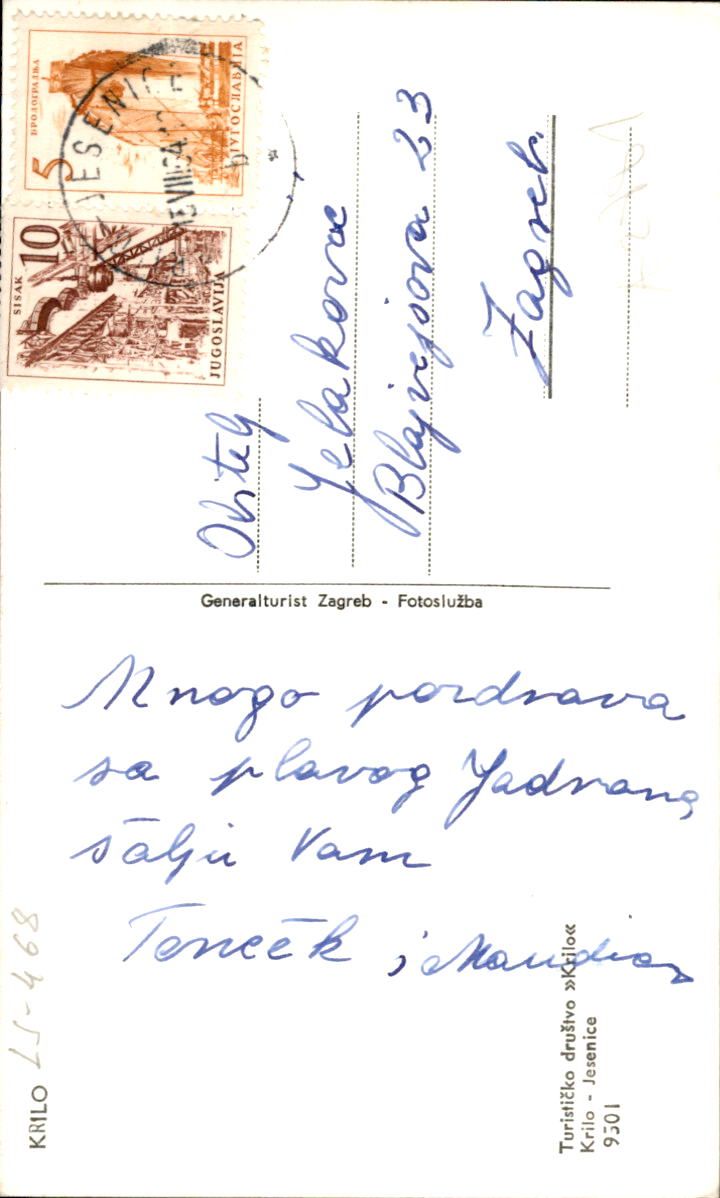 Mnogo pozdrava
sa plavog Jadrana
šalju Vam
Tonček i Mandica
Obitelj
Jelakovac
Blajvajsova 23
Zagreb.
Generalturist Zagreb - Fotoslužba
KRILO
LS-468
Turističko društvo »Krilo«
Krilo - Jesenice
9501
БРОДОГРАДЊА
5
ЈУГОСЛАВИЈА
SISAK
10
JUGOSLAVIJA
JESENICE